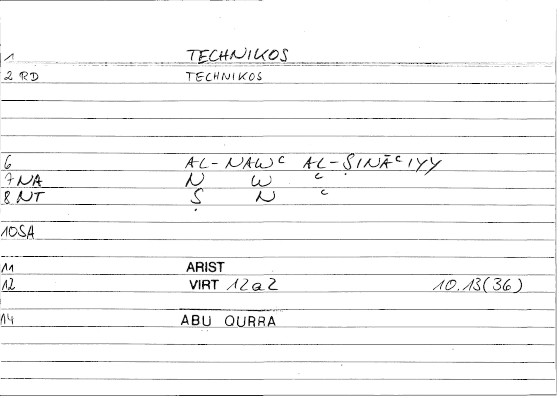 1 TECHNIKOS
2 RD TECHNIKOS
6 AL-NAWᶜ AL-ṢINĀᶜIYY
7 NA N W ᶜ
8 NT Ṣ N ᶜ
10SA
11 ARIST
12 VIRT 12a2 10.13(36)
14 ABU QURRA